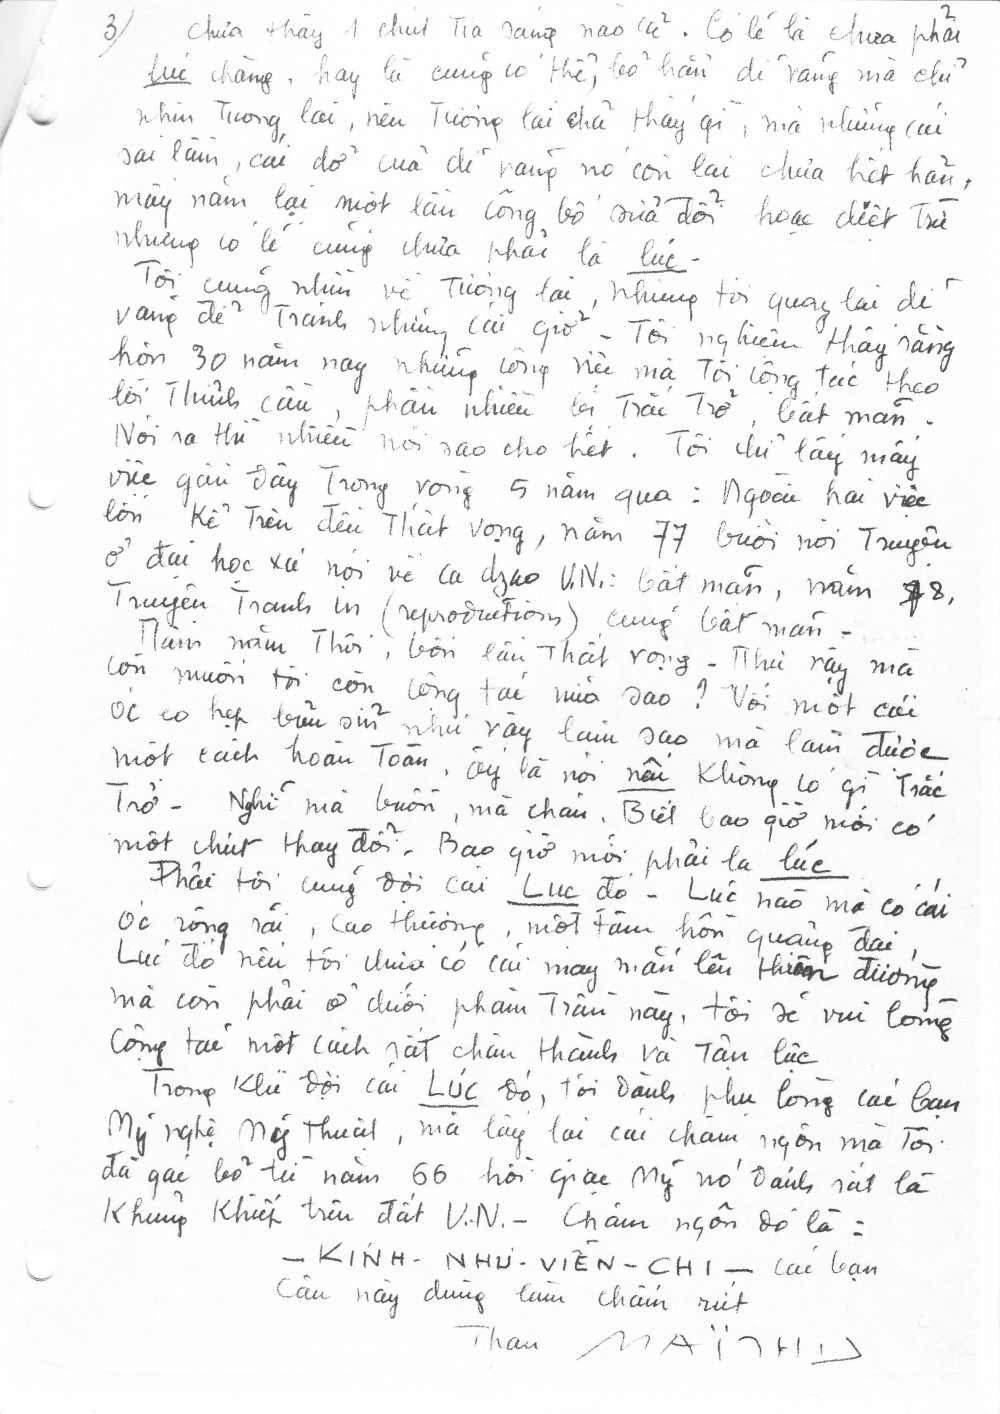 3/ chưa thấy 1 chút tia sáng nào cả. Có lẽ là chưa phải
lúc chăng, hay là cũng có thể, bỏ hẳn dĩ vãng mà chỉ
nhìn tương lai, nên tương lai chả thấy gì, mà những cái
sai lầm, cái dở của dĩ vãng nó còn lại chưa hết hẳn,
mấy năm lại một lần công bố sửa đổi hoặc diệt trừ
nhưng có lẽ cũng chưa phải là lúc -
Tôi cũng nhìn về tương lai, nhưng tôi quay lại dĩ
vãng để tránh những cái giở - Tôi nghiệm thấy rằng
hơn 30 năm nay những công việc mà tôi cộng tác theo
lời thỉnh cầu, phần nhiều bị trắc trở, bất mãn -
Nói ra thì nhiều nói sao cho hết. Tôi chỉ lấy mấy
việc gần đây trong vòng 5 năm qua : Ngoài hai việc
lớn kể trên đều thất vọng, năm 77 buổi nói truyện
ở đại học xá nói về ca dzao V.N. : bất mãn, năm 78,
truyện tranh in (reproductions) cũng bất mãn -
Năm năm thôi, bốn lần thất vọng - Như vậy mà
còn muốn tôi còn cộng tác nữa sao ? Với một cái
óc eo hẹp bủn sỉn như vậy làm sao mà làm được
một cách hoàn toàn, ấy là nói nếu không có gì trắc
trở - Nghĩ mà buồn, mà chán. Biết bao giờ mới có
một chút thay đổi - Bao giờ mới phải là lúc
Phải tôi cũng đợi cái Lúc đó - Lúc nào mà có cái
óc rộng rãi, cao thượng, một tâm hồn quảng đại,
Lúc đó nếu tôi chưa có cái may mắn lên thiên đường
mà còn phải ở dưới phàm trần này, tôi sẽ vui lòng
cộng tác một cách rất chân thành và tận lực
Trong khi đợi cái LÚC đó, tôi đành phụ lòng các bạn
Mỹ nghệ Mỹ thuật, mà lấy lại cái châm ngôn mà tôi
đã gác bỏ từ năm 66 hồi giặc Mỹ nó đánh rất là
khủng khiếp trên đất V.N. - Châm ngôn đó là :
- KÍNH - NHI - VIỄN - CHI - các bạn
Câu này dùng làm chấm rứt
Thân MAI THU